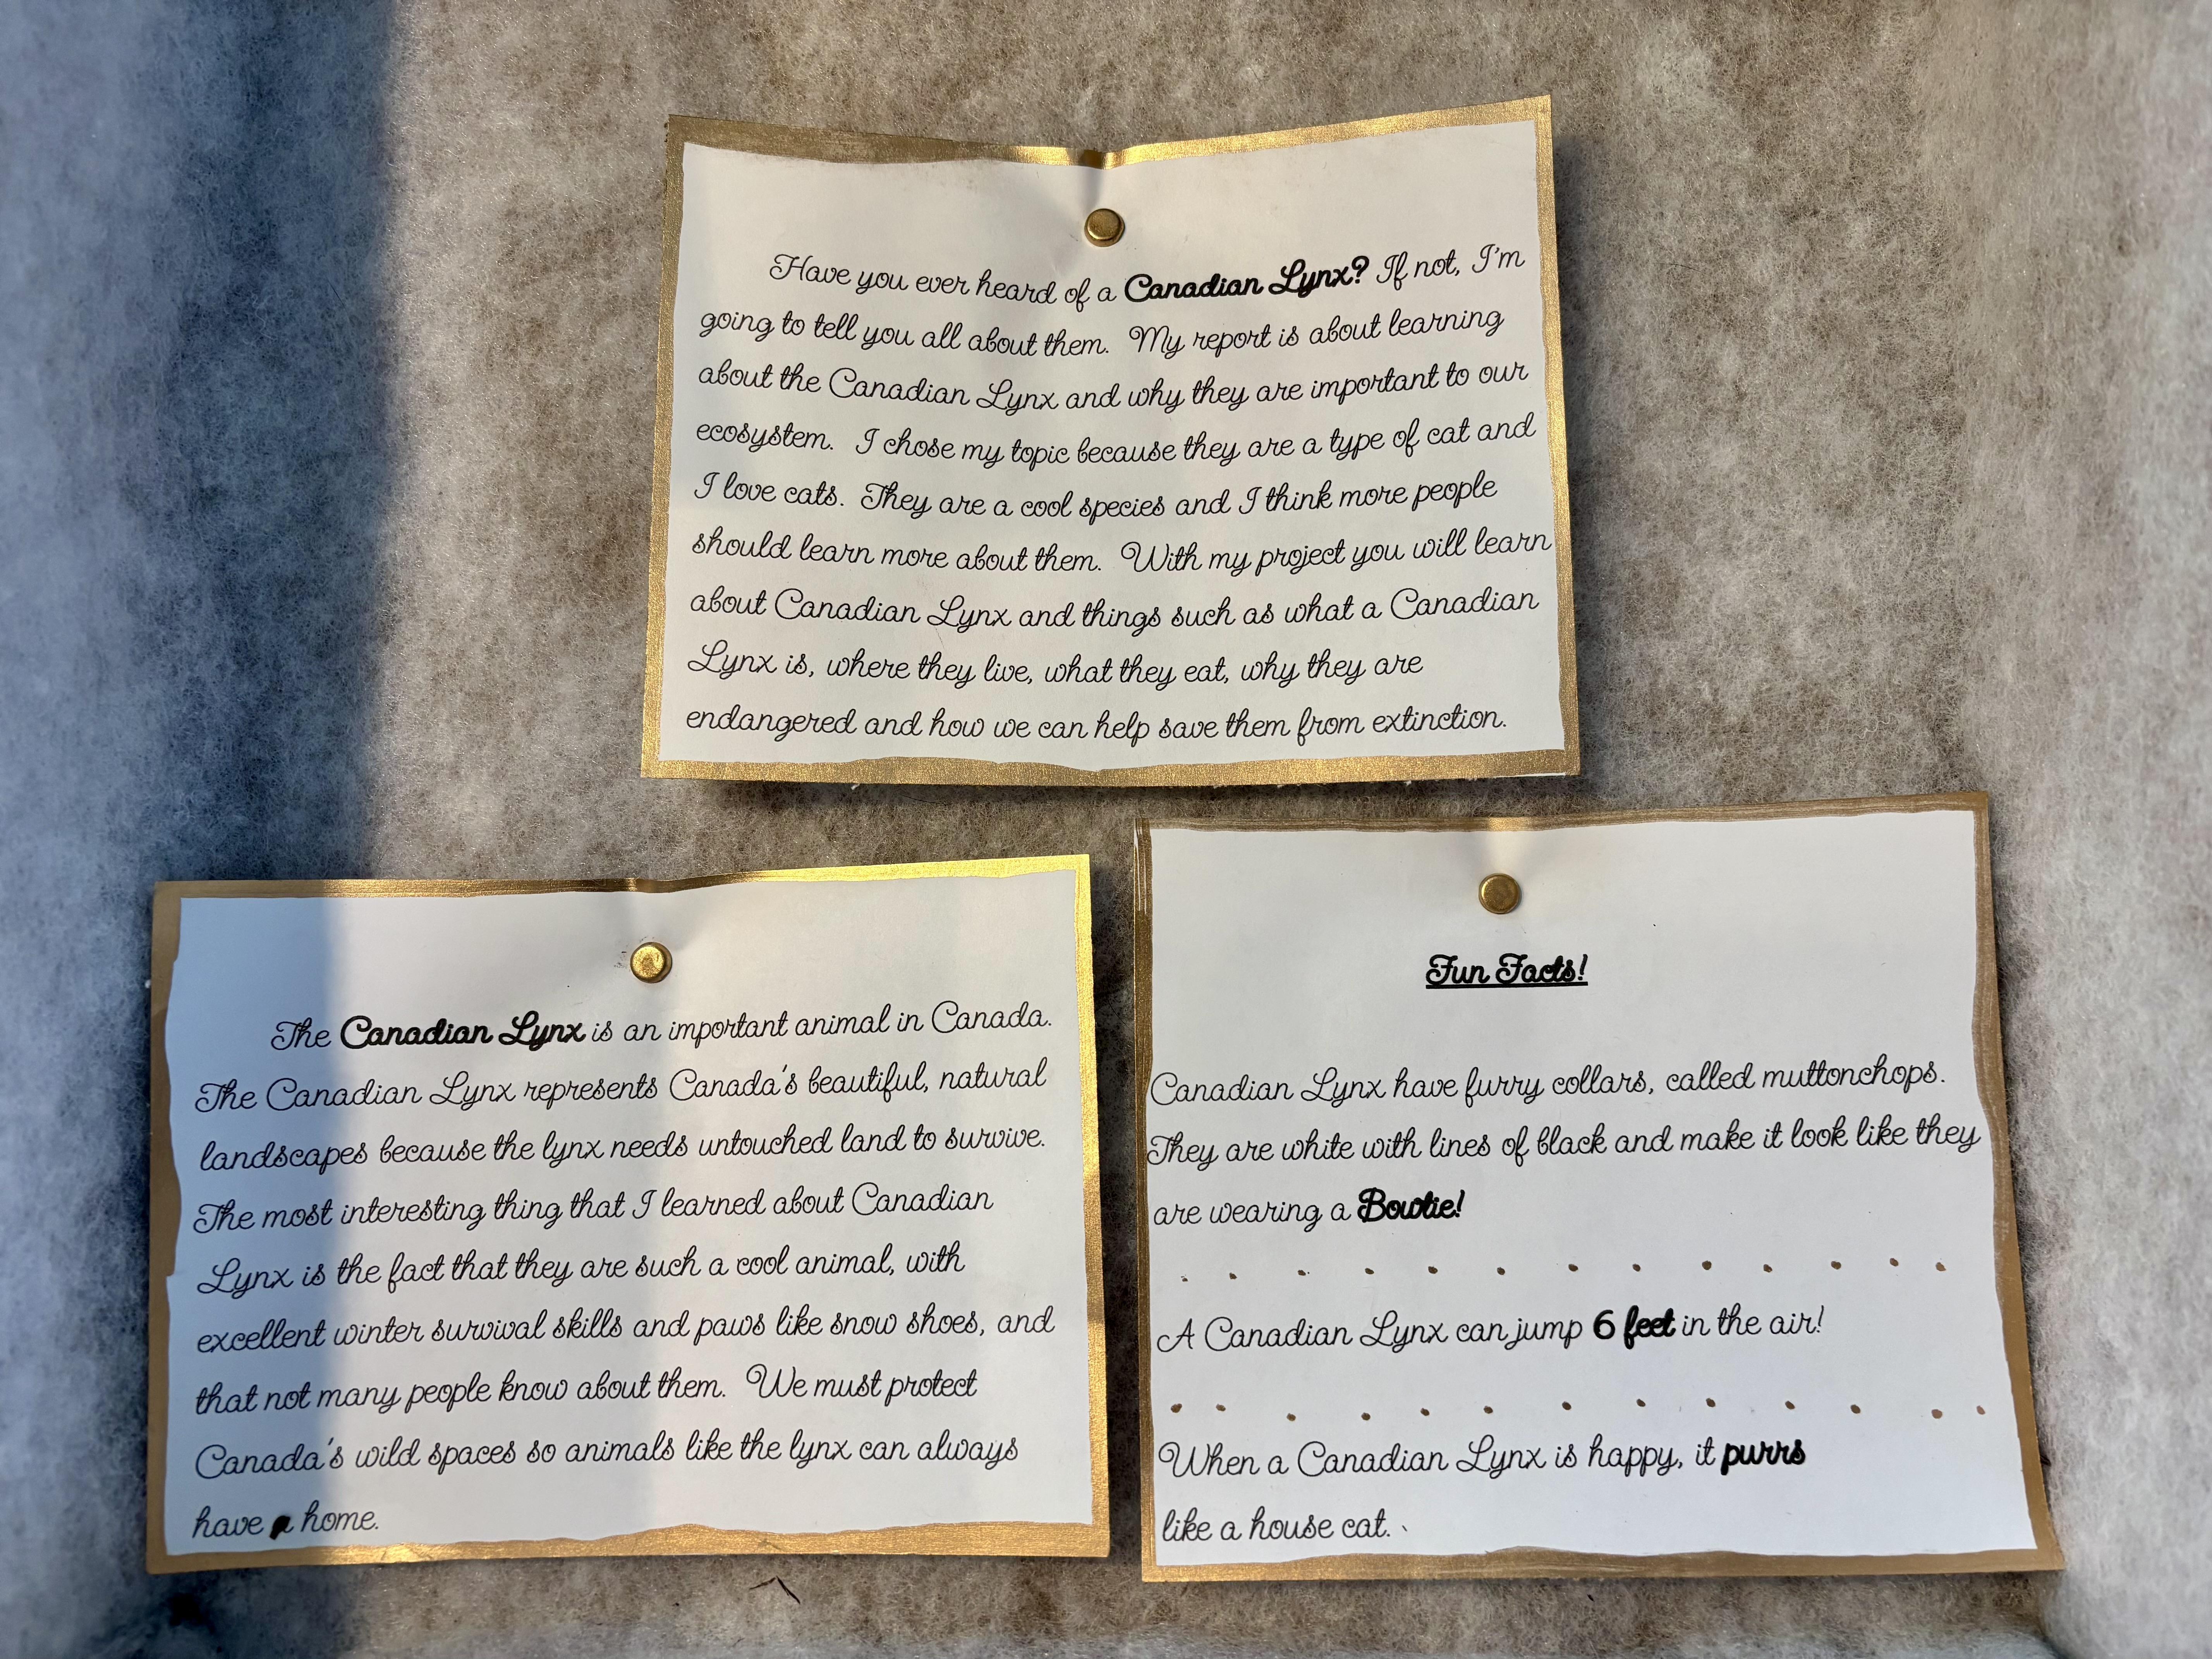 Have you ever heard of a Canadian Lynx? If not, I'm
going to tell you all about them. My report is about learning
about the Canadian Lynx and why they are important to our
ecosystem. I chose my topic because they are a type of cat and
I love cats. They are a cool species and I think more people
should learn more about them. With my project you will learn
about Canadian Lynx and things such as what a Canadian
Lynx is, where they live, what they eat, why they are
endangered and how we can help save them from extinction.
The Canadian Lynx is an important animal in Canada.
The Canadian Lynx represents Canada's beautiful, natural
landscapes because the lynx needs untouched land to survive.
The most interesting thing that I learned about Canadian
Lynx is the fact that they are such a cool animal, with
excellent winter survival skills and paws like snow shoes, and
that not many people know about them. We must protect
Canada's wild spaces so animals like the lynx can always
have a home.
Fun Facts!
Canadian Lynx have furry collars, called muttonchops.
They are white with lines of black and make it look like they
are wearing a Bowtie!
A Canadian Lynx can jump 6 feet in the air!
When a Canadian Lynx is happy, it purrs
like a house cat.